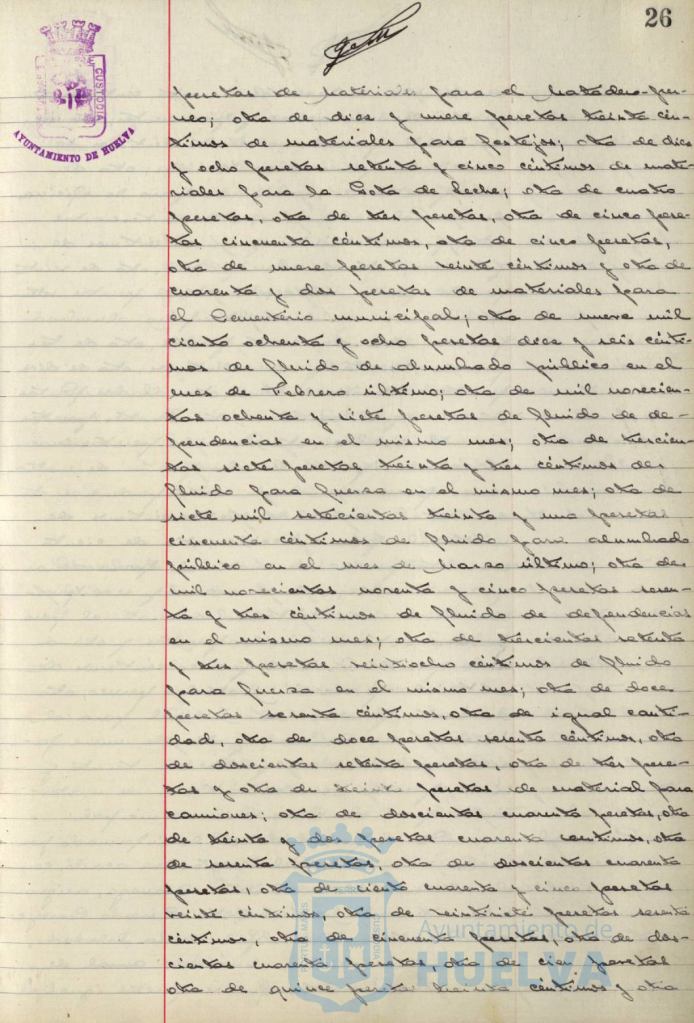 26
CUSTODIA
AYUNTAMIENTO DE HUELVA
pesetas de materiales para el Matadero pú-
otra de dies y nueve pesetas treinta cén-
timos de materiales para festejos; otra de dies
y ocho pesetas setenta y cinco céntimos de mate-
riales para la Gota de Leche; otra de cuatro
pesetas, otra de tres pesetas, otra de cinco pese-
tas cincuenta céntimos, otra de cinco pesetas,
otra de nueve pesetas veinte céntimos y otra de
cuarenta y dos pesetas de materiales para
el Cementerio municipal; otra de nueve mil
ciento ochenta y ocho pesetas dies y seis cénti-
mos de fluido de alumbrado público en el
mes de Febrero último; otra de mil novecien-
tas ochenta y siete pesetas de fluido de de-
pendencias en el mismo mes; otra de trescien-
tas siete pesetas treinta y tres céntimos de
fluido para fuersa en el mismo mes; otra de
siete mil setecientas treinta y una pesetas
cincuenta céntimos de fluido para alumbrado
público en el mes de Marso último; otra de
mil novecientas noventa y cinco pesetas sesen-
ta y tres céntimos de fluido de dependencias
en el mismo mes; otra de trescientas setenta
y tres pesetas veintiocho céntimos de fluido
para fuersa en el mismo mes; otra de doce
pesetas sesenta céntimos, otra de igual canti-
dad, otra de doce pesetas sesenta céntimos, otra
de doscientas setenta pesetas, otra de tres pese-
tas y otra de pesetas de material para
camiones; otra de doscientas cuarenta pesetas, otra
de treinta y dos pesetas cuarenta centimos, otra
de sesenta pesetas, otra de doscientas cuarenta
pesetas, otra de ciento cuarenta y cinco pesetas
veinte céntimos, otra de veintisiete pesetas sesenta
céntimos, otra de cincuenta pesetas, otra de dos-
cientas cuarenta pesetas, otra de cien pesetas
otra de quince pesetas treinta céntimos y otra
Ayuntamiento de
HUELVA